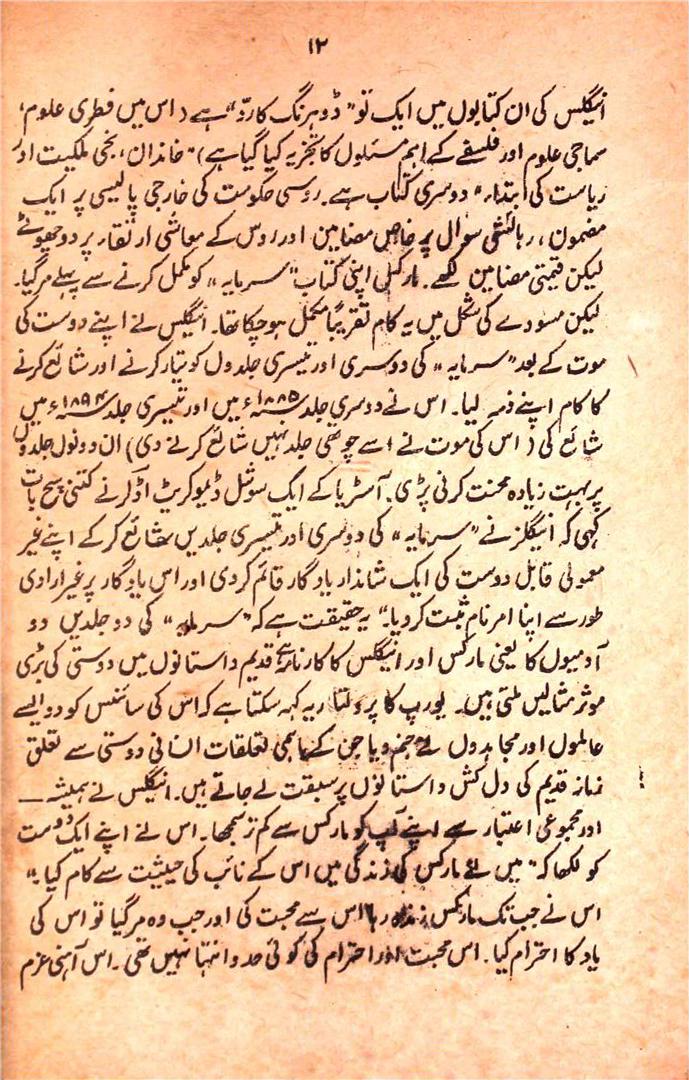 ۱۲
اینگلس کی ان کتابوں میں ایک تو "ڈوہرنگ کا ردّ" ہے (اس میں فطری علوم،
سماجی علوم اور فلسفے کے اہم مسئلوں کا تجزیہ کیا گیا ہے) "خاندان، نجی ملکیت اور
ریاست کی ابتداء" دوسری کتاب ہے۔ روسی حکومت کی خارجی پالیسی پر ایک
مضمون، رہائشی سوال پر خاص مضامین اور روس کے معاشی ارتقاء پر دو چھوٹے
لیکن قیمتی مضامین لکھے۔ مارکس اپنی کتاب "سرمایہ" کو مکمل کرنے سے پہلے مرگیا۔
لیکن مسودے کی شکل میں یہ کام تقریباً مکمل ہوچکا تھا۔ اینگلس نے اپنے دوست کی
موت کے بعد "سرمایہ" کی دوسری اور تیسری جلدوں کو تیار کرنے اور شائع کرنے
کا کام اپنے ذمہ لیا۔ اس نے دوسری جلد ۱۸۸۵ء میں اور تیسری جلد ۱۸۹۴ء میں
شائع کی (اس کی موت نے اسے چوتھی جلد نہیں شائع کرنے دی) ان دونوں جلدوں
پر بہت زیادہ محنت کرنی پڑی۔ آسٹریا کے ایک سوشل ڈیموکریٹ آڈلر نے کتنی سچ بات
کہی کہ اینگلز نے "سرمایہ" کی دوسری اور تیسری جلدیں شائع کرکے اپنے غیر
معمولی قابل دوست کی ایک شاندار یادگار قائم کردی اور اس یادگار پر غیرارادی
طور سے اپنا امر نام ثبت کردیا۔" یہ حقیقت ہے کہ "سرمایہ" کی دو جلدیں دو
آدمیوں کا یعنی مارکس اور اینگلس کا کارنامہ ہے قدیم داستانوں میں دوستی کی بڑی
موثر مثالیں ملتی ہیں۔ یورپ کا پرولتاریہ کہہ سکتا ہے کہ اس کی سائنس کو دو ایسے
عالموں اور مجاہدوں نے جنم دیا جن کے باہمی تعلقات انسانی دوستی سے تعلق
زمانہ قدیم کی دل کش داستانوں پر سبقت لے جاتے ہیں۔ اینگلس نے ہمیشہ ــــ
اور مجموعی اعتبار سے اپنے آپ کو مارکس سے کم تر سمجھا۔ اس نے اپنے ایک دوست
کو لکھا کہ "میں نے مارکس کی زندگی میں اس کے نائب کی حیثیت سے کام کیا۔"
اس نے جب تک مارکس زندہ رہا اس سے محبت کی اور جب وہ مرگیا تو اس کی
یاد کا احترام کیا۔ اس محبت اور احترام کی کوئی حد و انتہا نہیں تھی۔ اس آہنی عزم